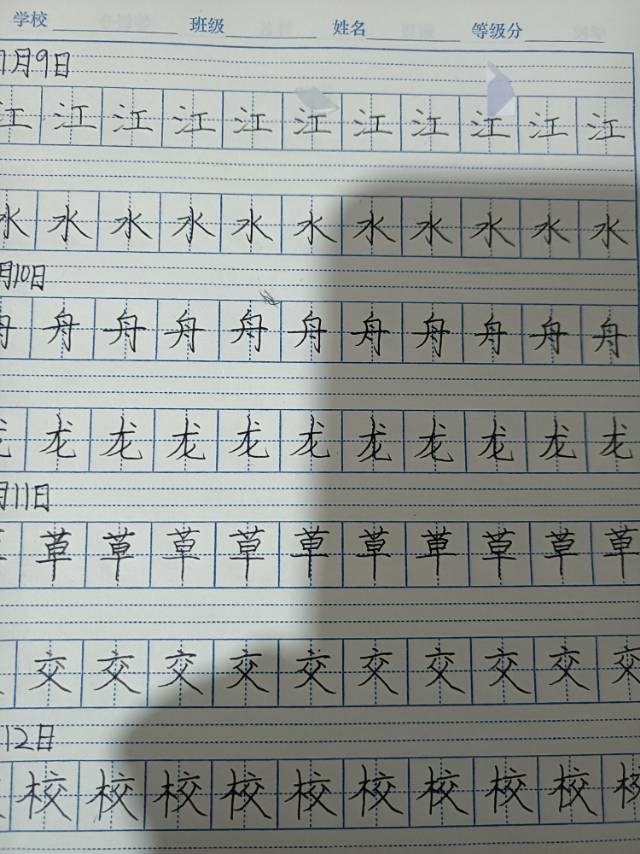 学校 班级 姓名 等级分
1月9日
江 江 江 江 江 江 江 江 江 江 江
水 水 水 水 水 水 水 水 水 水 水
月10日
舟 舟 舟 舟 舟 舟 舟 舟 舟 舟 舟
龙 龙 龙 龙 龙 龙 龙 龙 龙 龙 龙
月11日
草 草 草 草 草 草 草 草 草 草
交 交 交 交 交 交 交 交 交 交
12日
校 校 校 校 校 校 校 校 校 校